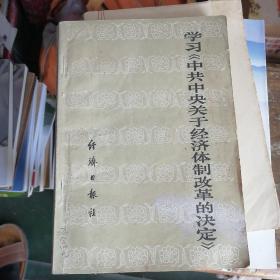 学习《中共中央关于经济体制改革的决定》
经济日报社